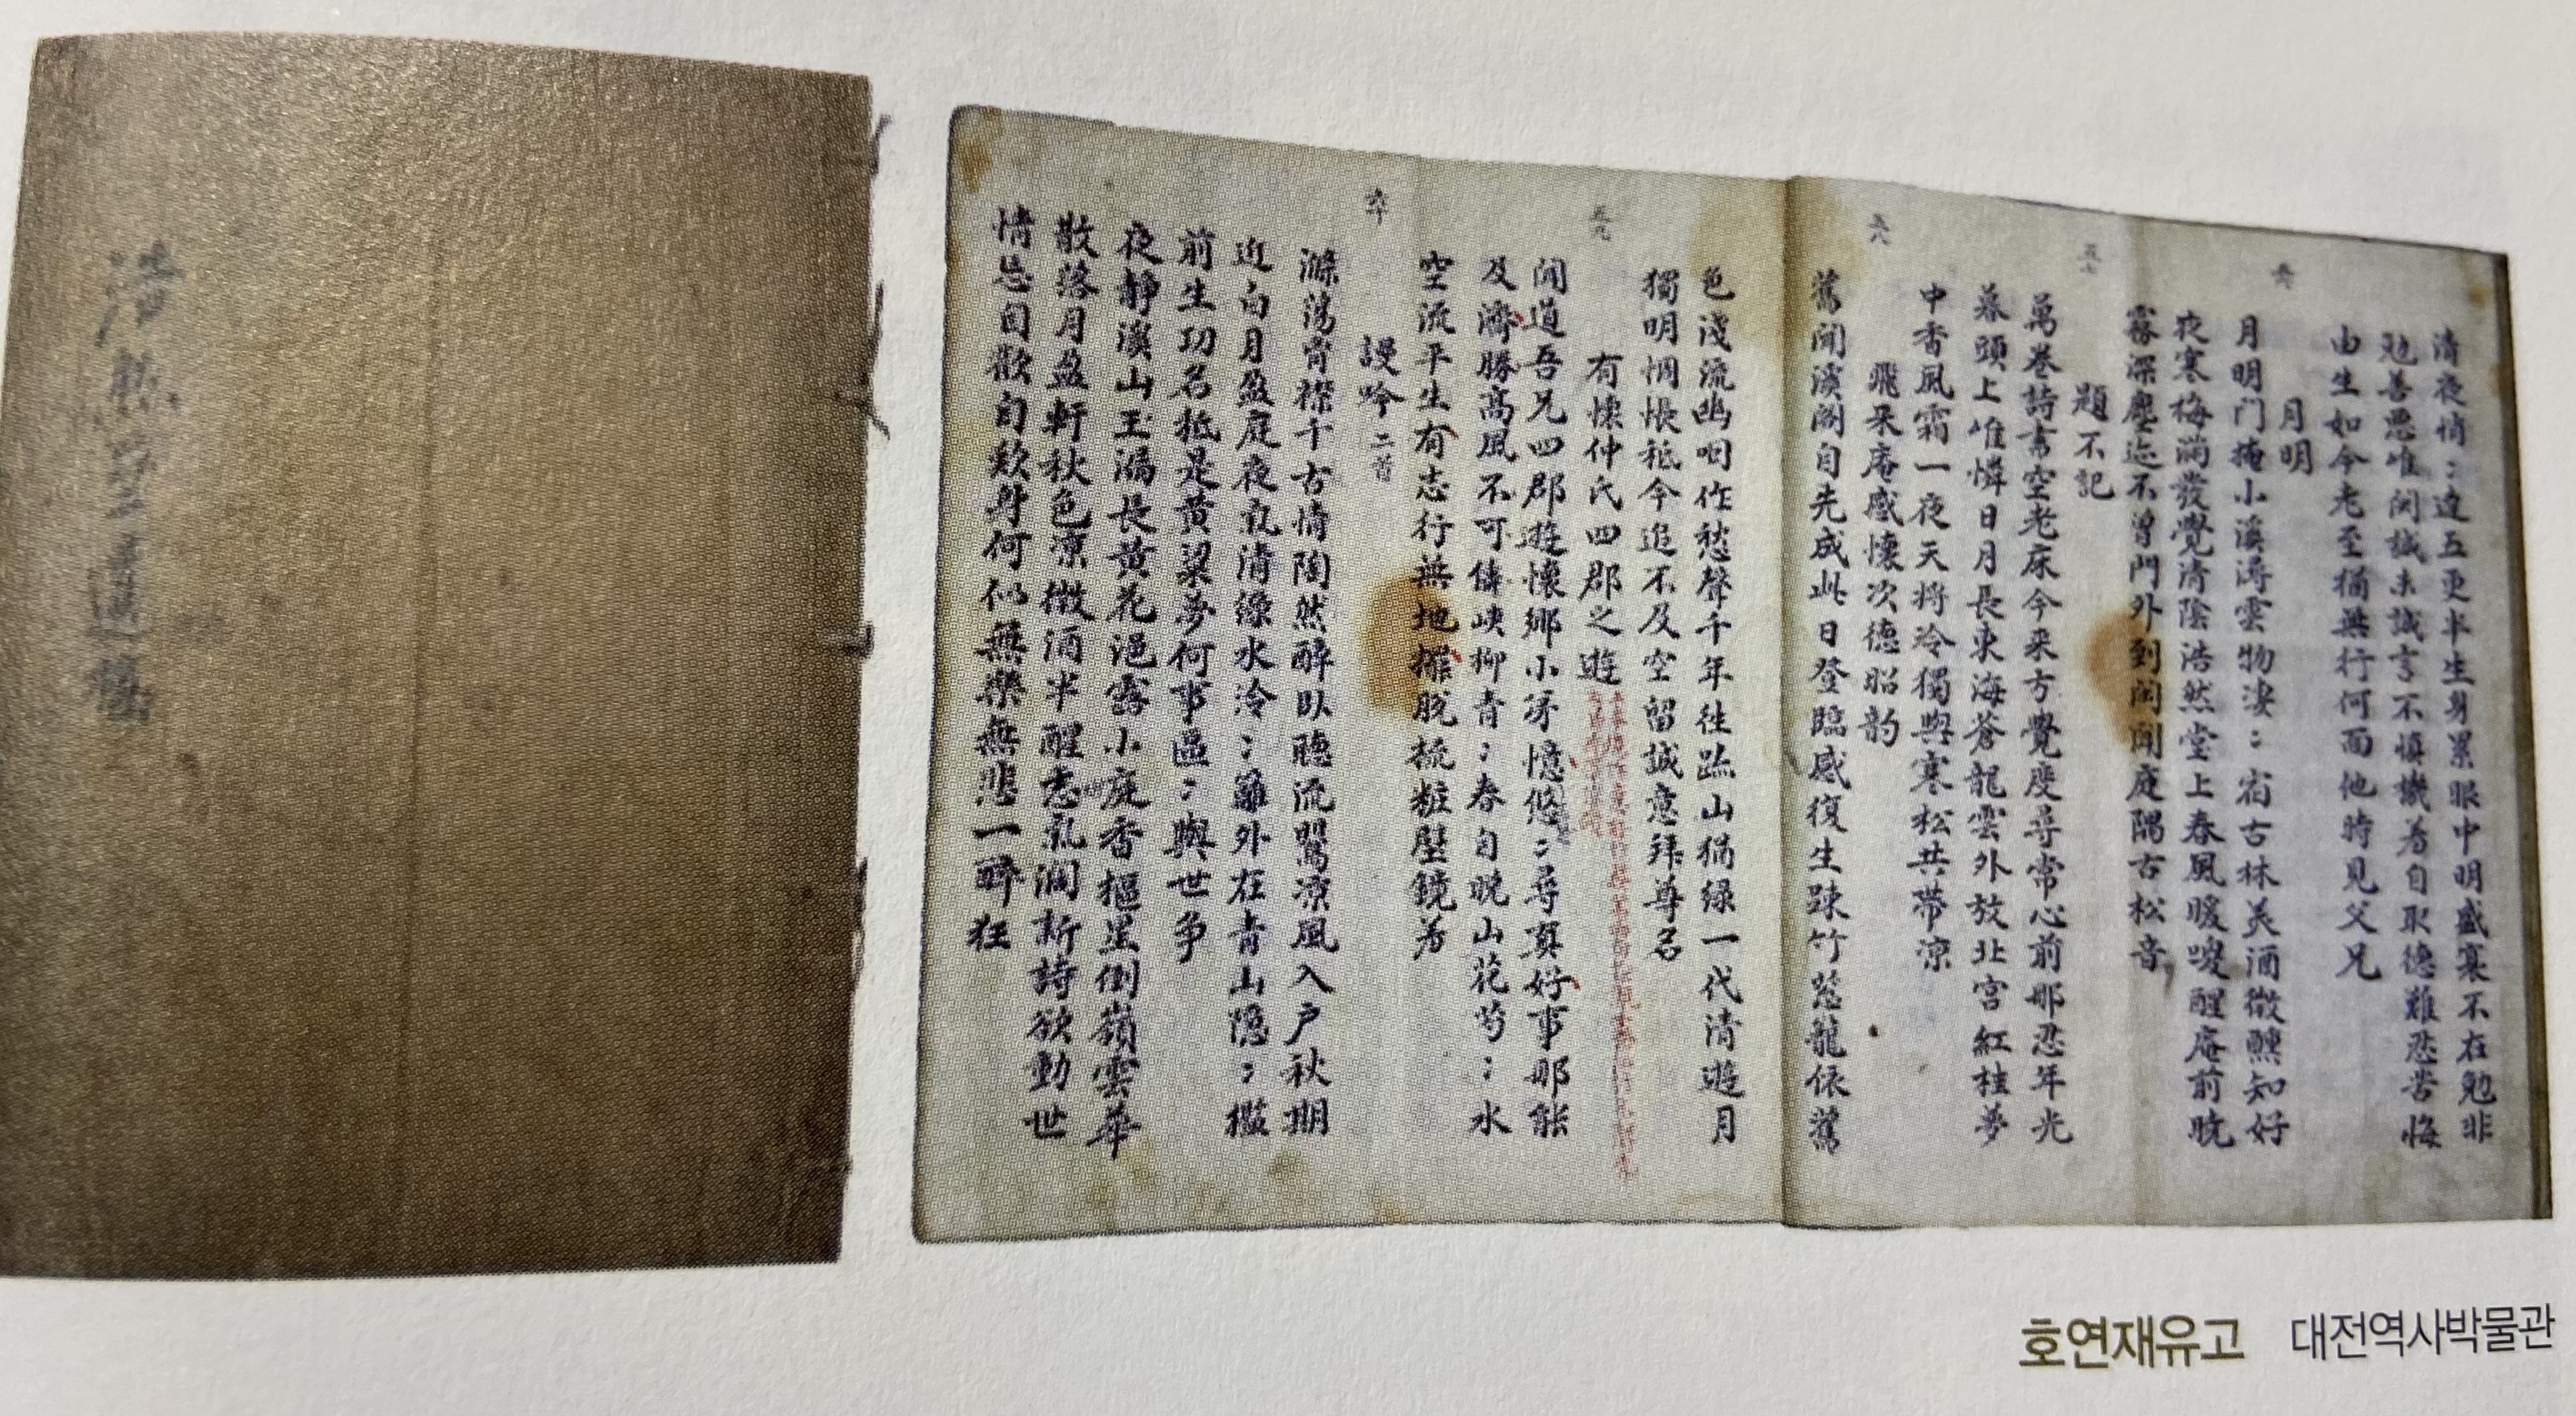 浩然齋遺稿
清夜悄:達五更半生身累眼中明盛衰不在勉非
勉善惡唯関誠未誠言不慎機着自取德難忍苦悔
由生如今老至猶無行何面他時見父兄
月明
月明門掩小溪潯雲物凄:宿古林美酒微醺知好
夜寒梅滿發覺清陰浩然堂上春風暖嗳醒庵前暁
霧深塵迹不曾門外到閑閑庭隅古松音
題不記
萬卷詩書空老床今来方覺度尋常心前那忍年光
暮頭上唯憐日月長東海蒼龍雲外放北宮紅桂夢
中香風霜一夜天将冷獨與寒松共帶凉
五七
飛来庵感懷次德昭韵
五八
舊聞溪閣自先成此日登臨感復生疎竹蒼龍依舊
色淺流幽咽作愁聲千年往跡山猶綠一代清遊月
獨明惆悵秪今追不及空留誠意拜尊名
有懷仲氏四郡之遊
五九
聞道吾兄四郡遊懷鄉小弟憶悠:尋真好事那能
及濟勝高風不可儔峽柳青:春自晚山花芍:水
空流平生有志行無地擺脫梳粧壁鏡羞
六十
謾吟二首
滌蕩胷襟千古情陶然醉臥聽流鸎凉風入戶秋期
近白月盈庭夜氣清綠水泠:籬外在青山隱:檻
前生功名秪是黃粱夢何事區:與世爭
夜靜溪山玉漏長黃花浥露小庭香樞星倒嶺雲華
散落月盈軒秋色凉微酒半醒志氣濶新詩欲動世
情忘自歎自歎身何似無樂無悲一醉狂
호연재유고 대전역사박물관